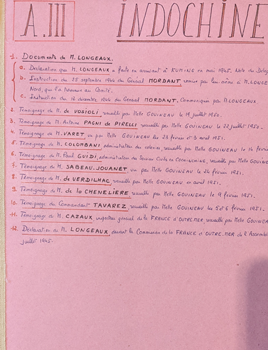 A.III INDOCHINE
1. DOCUMENTS de M. LONGEAUX.
a. Déclaration que M. LONGEAUX a faite en revenant à en mai 1945,
b. Instruction du 25 septembre 1944 du Général MORDANT remise par lui-même à M. LONGEAUX
c. Instruction du 16 décembre 1944 du Général MORDANT, Communiquée par M. LONGEAUX
2. Témoignage de M. de recueilli par Melle GOUINEAU le 19 juillet 1951.
3. Témoignage de M. Antoine PAGNI de PIRELLI recueilli par Melle GOUINEAU le 20 juillet 1951.
4. Témoignage de M. VARET recueilli par Melle GOUINEAU les 23 février et 3 avril 1951.
5. Témoignage de M. COLOMBANI, administrateur des colonies, recueilli par Melle GOUINEAU le
6. Témoignage de M. Paul GUIDI, administrateur des Services Civils en COCHINCHINE, recueilli par Melle GOUINEAU
7. Témoignage de M. SABEAU-JOUANET recueilli par Melle GOUINEAU le 26 février 1951.
8. Témoignage de M. de VERDILHAC, recueilli par Melle GOUINEAU avril 1951.
9. Témoignage de M. de la CHENELIERE recueilli par Melle GOUINEAU le 19 février 1951.
10. Témoignage du Commandant TAVAREZ recueilli par Melle GOUINEAU les 5 et 6 février 1951.
11. Témoignage de M. CAZAUX, inspecteur général de la FRANCE D'OUTRE-MER, recueilli par Melle GOUINEAU
12. Déclaration de M. LONGEAUX devant la Commission de la FRANCE D'OUTRE-MER de l'Assemblée
juillet 1945.